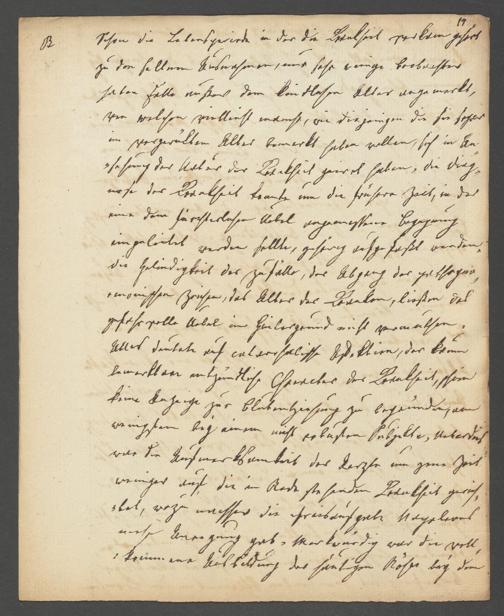 19
B
Schon die Lebensperiode in der die Krankheit vorkam gehört
zu den seltenen Ausnahmen, nur sehr wenige Beobachter
haben Fälle außer dem kindlichen Alter angemerkt,
von welchen vielleicht manche, wie diejenigen die sie sogar
im vorgerückten Alter bemerkt haben wollen, sich in An-
sehung der Natur der Krankheit geirrt haben, die Diag-
nose der Krankheit konnte um die frühere Zeit, in der
eine dem fürchterlichen Uebel angemessene Begegnung
eingeleitet werden sollte, gehörig aufgefaßt werden,
die Gelindigkeit der Zufälle, der Abgang der pathogno-
monischen Zeichen, das Alter der Kranken, ließen das
gefahrvolle Uebel im Hintergrund nicht vermuthen.
Alles deutete auf catarrhalische Affektion, der kaum
bemerkbare entzündliche Charakter der Krankheit, schien
keine Anzeige zur Blutentziehung zu begründen, am
wenigsten bey einem nicht robusten Subjekte, Ueberdies
war die Aufmerksamkeit der Aerzte um jene Zeit
weniger auf die in Rede stehende Krankheit gerich-
tet, wozu nachher die Preisaufgabe Napoleons
mehr Anregung gab. Merkwürdig war die voll-
kommene Ausbildung der häutigen Röhre bey dem